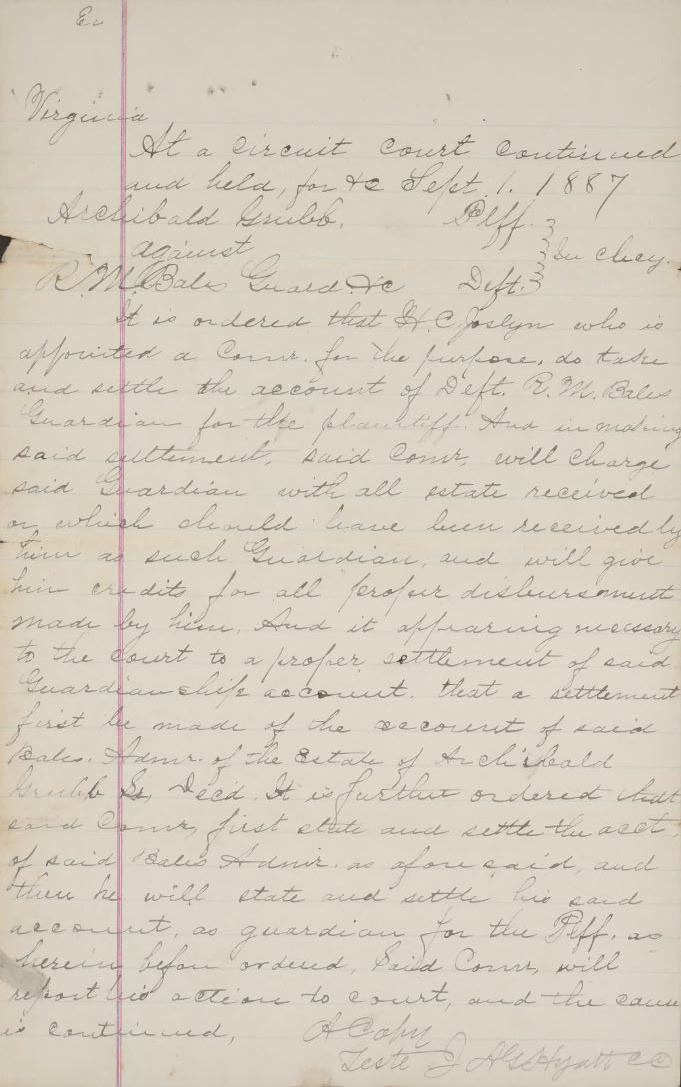 Virginia
At a circuit court continued
and held, for &c Sept. 1. 1887
Archibald Grubb. Plff.
against
In chcy.
R. M. Bales Guard. &c Deft.
It is ordered that H. C. Joslyn who is
appointed a Comr. for the purpose, do take
and settle the account of Deft. R. M. Bales
Guardian for the plaintiff. And in making
said settlement, said Comr, will charge
said Guardian with all estate received
or which should have been received by
him as such Guardian, and will give
him credits for all proper disbursment
made by him. And it appearing necessary
to the court to a proper settlement of said
Guardianship account. that a settlement
first be made of the account of said
Bales. Admr. of the Estate of Archibald
Grubb Sr, Decd. It is further ordered that
said Comr, first state and settle the acct.
of said Bales Admr. as afore said, and
then he will state and settle his said
account, as guardian for the Plff. as
herein before ordered, Said Comr, will
report his action to court, and the cause
is continued,
A Copy
Teste J A G Hyatt CC